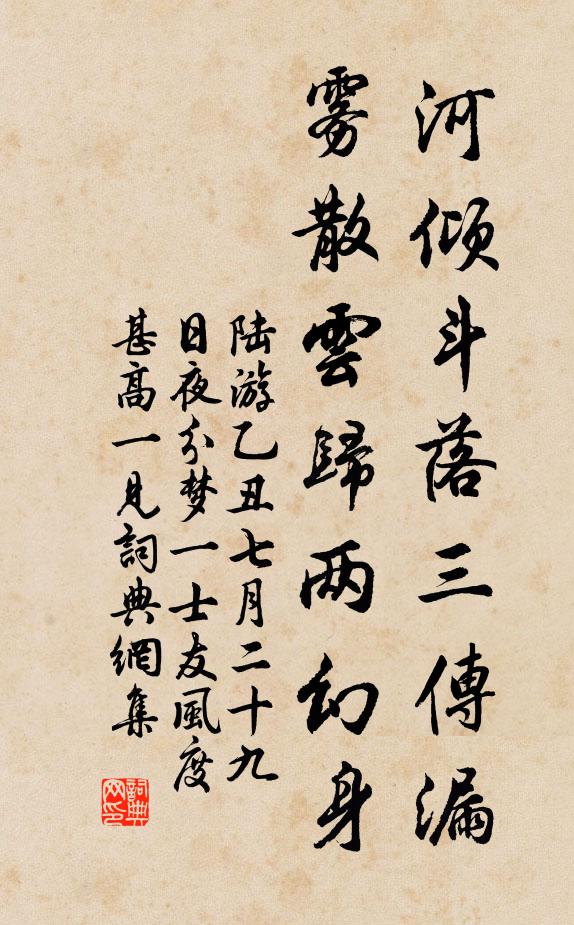 河倾斗落三傳漏
雾散雲歸两幻身
陆游乙丑七月二十九
日夜分梦一士友風度
甚高一見詞典網集
詞典
网印